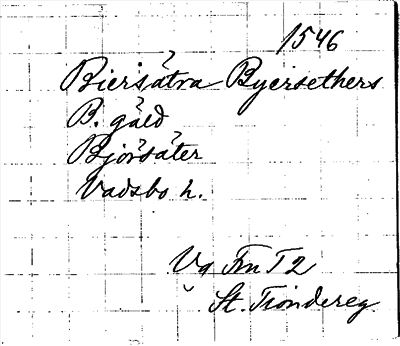 1546
Biersätra Byersethers
B. gäld
Björsäter
Vadsbo h.
Vg Fru T 2
St. Tiondereg